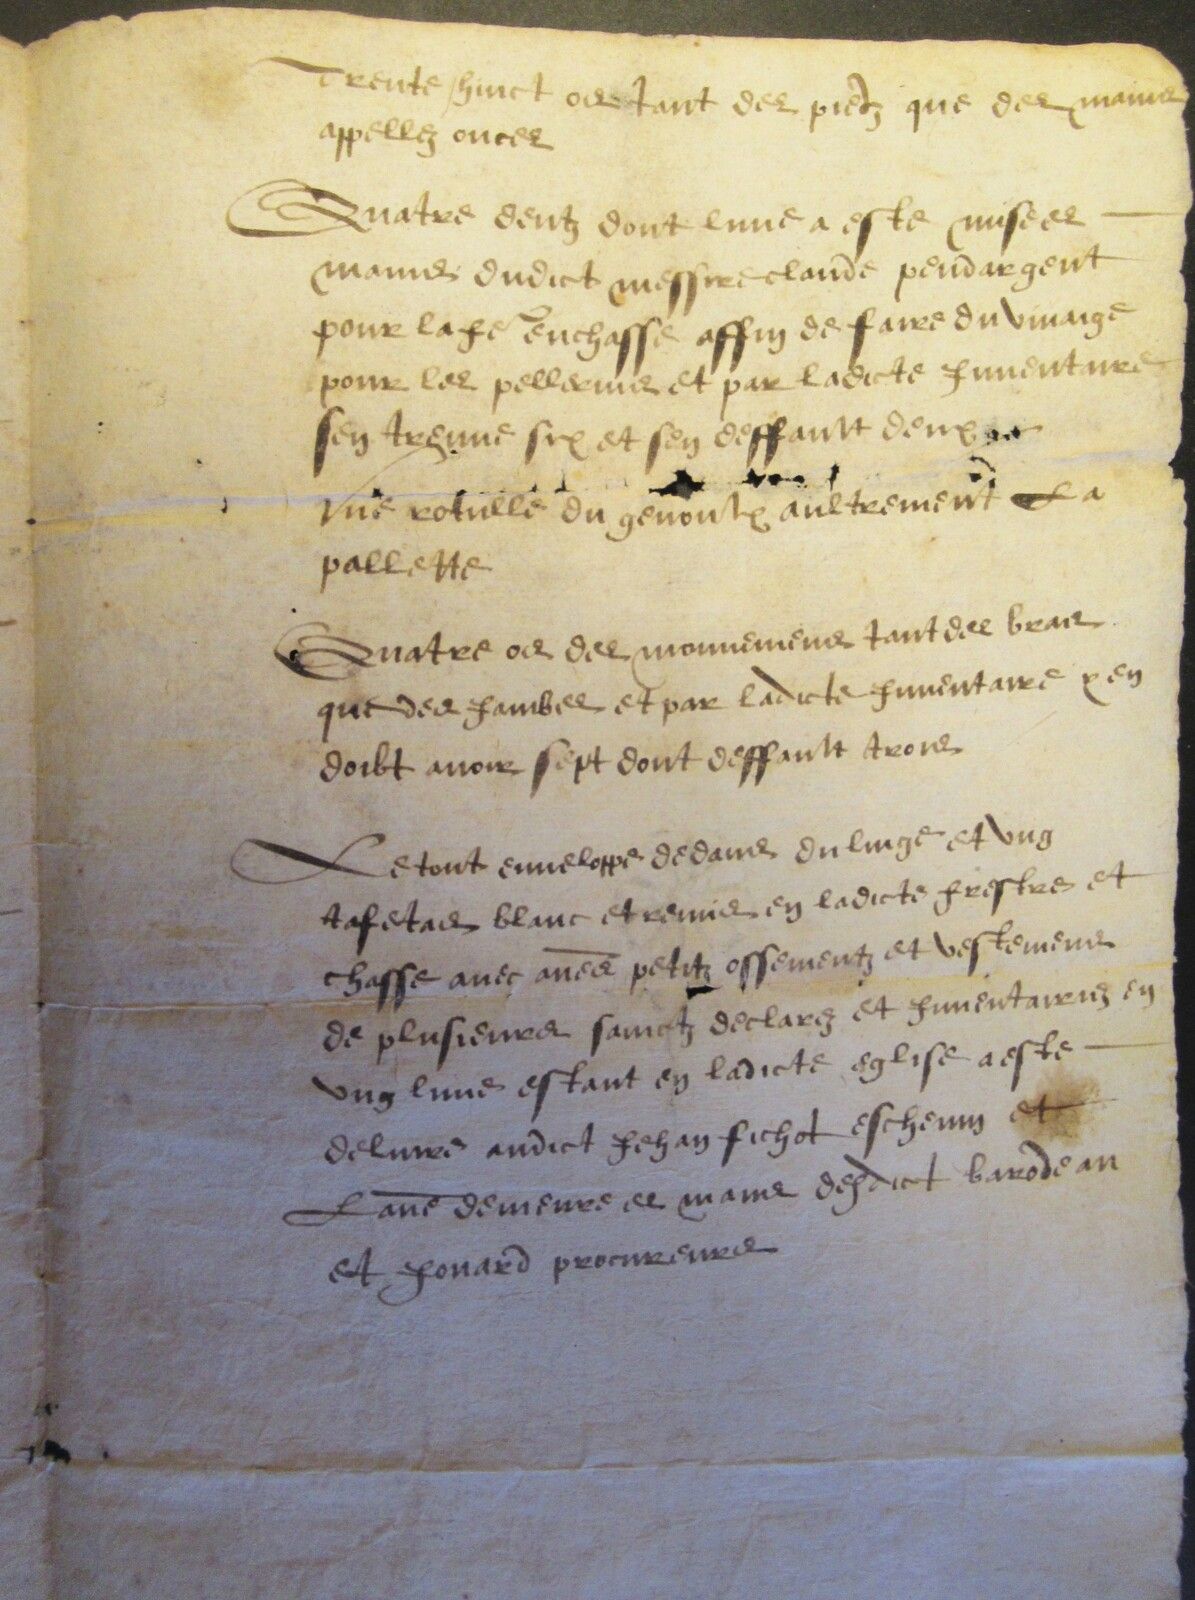 Trente huict os tant des piedz que des mains
appellez onces
Quatre dentz dont lune a este mise es
mains dudict messire claude pendargent
pour la fe enchasse affin de faire du vinaige
pour les pellerins et par ladicte Inventaire
sen treuve six et sen deffault deux
Une rotulle du genoulx aultrement La
pallette
Quatre os des mouvemens tant des bras
que des Jambes et par ladicte Inventaire y en
doibt avoir sept dont deffault trois
Le tout enveloppe dedans du linge et ung
tafetas blanc et remis en ladicte et
chasse avec aues petitz ossementz et vestemens
de plusieurs sainctz declarez et Inventairiez en
ung livre estant en ladicte eglise a este
delivre audict Jehan fichot eschevin et
Laue demeure es mains desdict barodeau
et Jouard procureurs